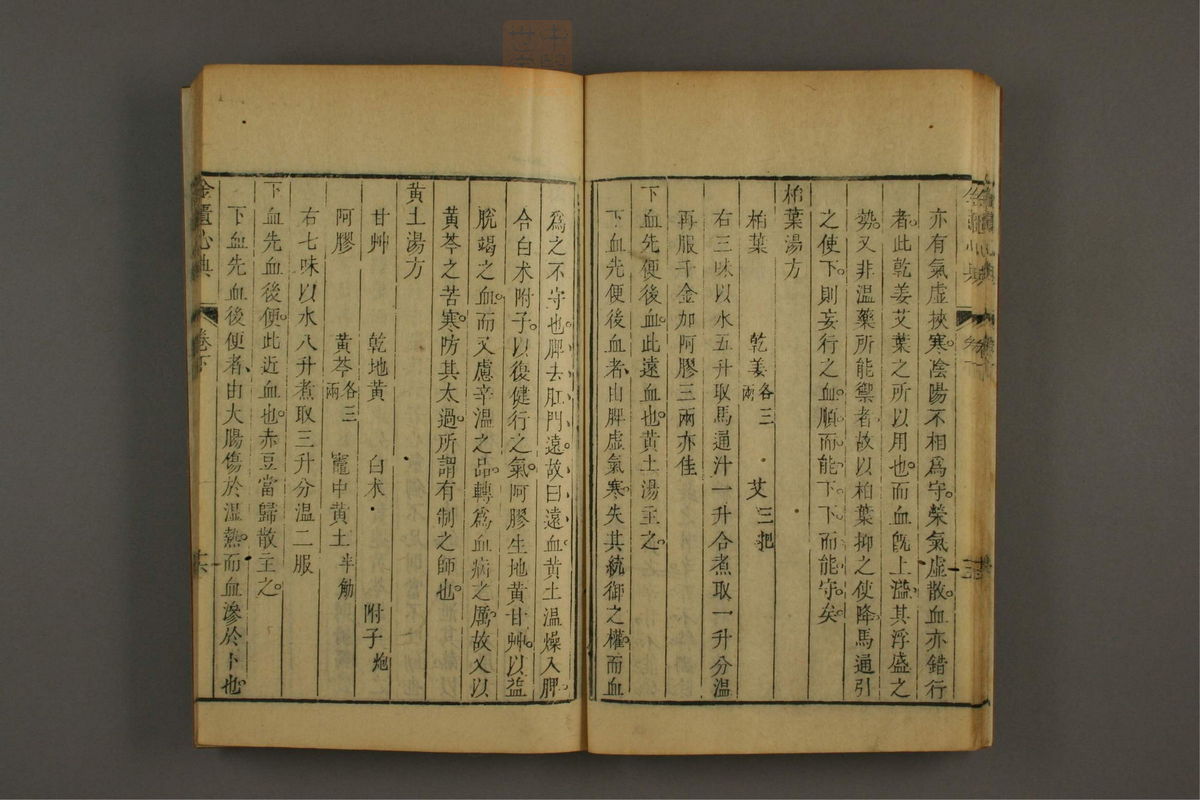 亦有氣虛挾寒。陰陽不相爲守。榮氣虛散。血亦錯行
者。此乾姜艾葉之所以用也。而血旣上溢。其浮盛之
勢。又非溫藥所能禦者。故以柏葉抑之使降。馬通引
之使下。則妄行之血。順而能下。下而能守矣
柏葉湯方
柏葉 乾姜各三兩 艾三把
右三味以水五升取馬通汁一升合煮取一升分溫
再服千金加阿膠三兩亦佳
下血先便後血。此遠血也。黃土湯主之。
下血先便後血者、由脾虛氣寒。失其統御之權。而血
爲之不守也。脾去肛門遠。故曰遠血。黃土溫燥入脾。
合白朮附子。以復健行之氣。阿膠生地黃甘艸。以益
脫竭之血。而又慮辛溫之品。轉爲血病之厲。故又以
黃芩之苦寒。防其太過。所謂有制之師也。
黃土湯方
甘艸 乾地黃 白朮 附子炮
阿膠 黃芩各三兩 竈中黃土半觔
右七味以水八升煮取三升分溫二服
下血先血後便。此近血也。赤豆當歸散主之。
下血先血後便者、由大腸傷於溫熱。而血滲於下也。
金匱心典 卷下